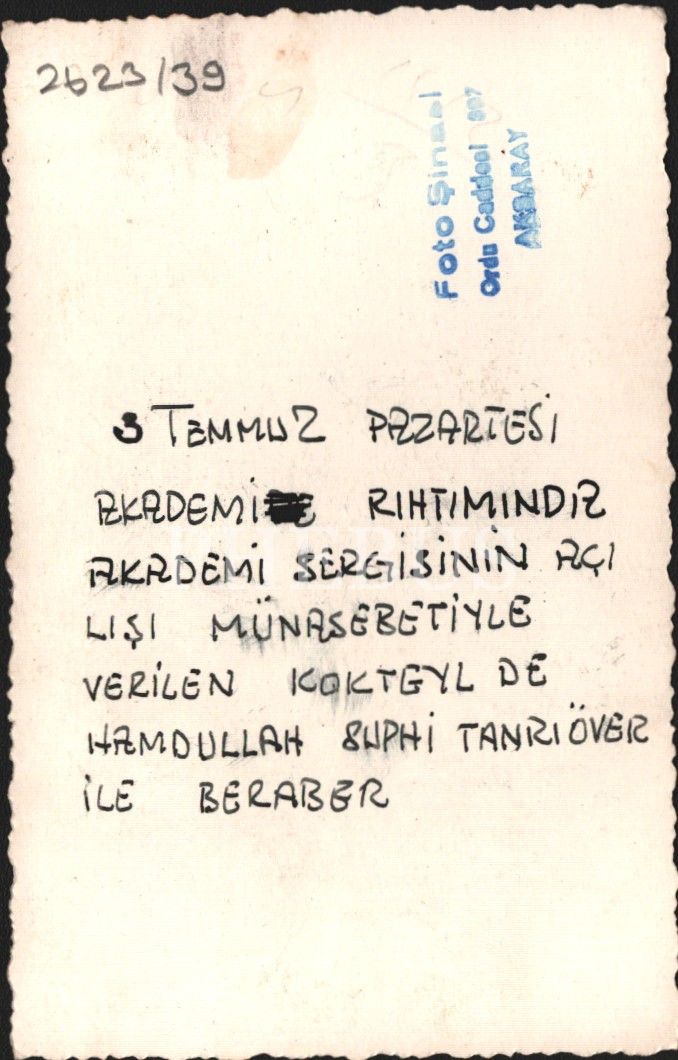 2623/39
Foto Şinasi
Ordu Caddesi
AKSARAY
3 TEMMUZ PAZARTESİ
AKADEMİ RIHTIMINDA
AKADEMİ SERGİSİNİN AÇI
LIŞI MÜNASEBETİYLE
VERİLEN KOKTEYL DE
HAMDULLAH SUPHİ TANRIÖVER
İLE BERABER